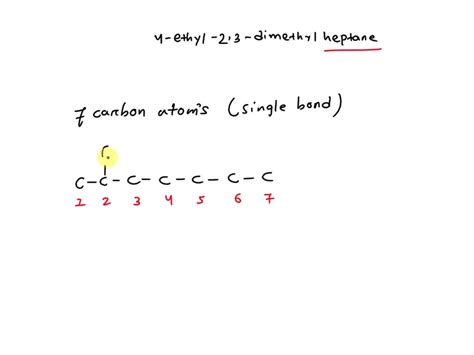 4-ethyl-2,3-dimethyl heptane
7 carbon atoms (single bond)
C
C-C-C-C-C-C-C
1 2 3 4 5 6 7